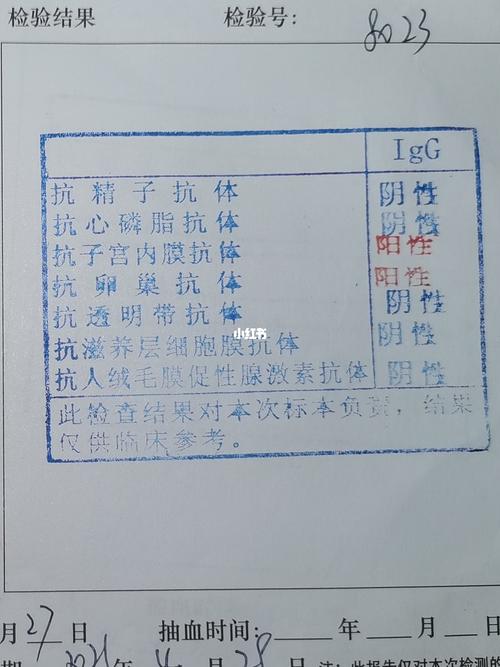 检验结果 检验号: 8023
IgG
抗精子抗体 阴性
抗心磷脂抗体 阴性
抗子宫内膜抗体 阳性
抗卵巢抗体 阳性
抗透明带抗体 阴性
小红书
抗滋养层细胞膜抗体 阴性
抗人绒毛膜促性腺激素抗体 阴性
此检查结果对本次标本负责,结果
仅供临床参考。
月27日 抽血时间: 年 月 日
期 2021年 月28日 注:此报告仅对本次检测的